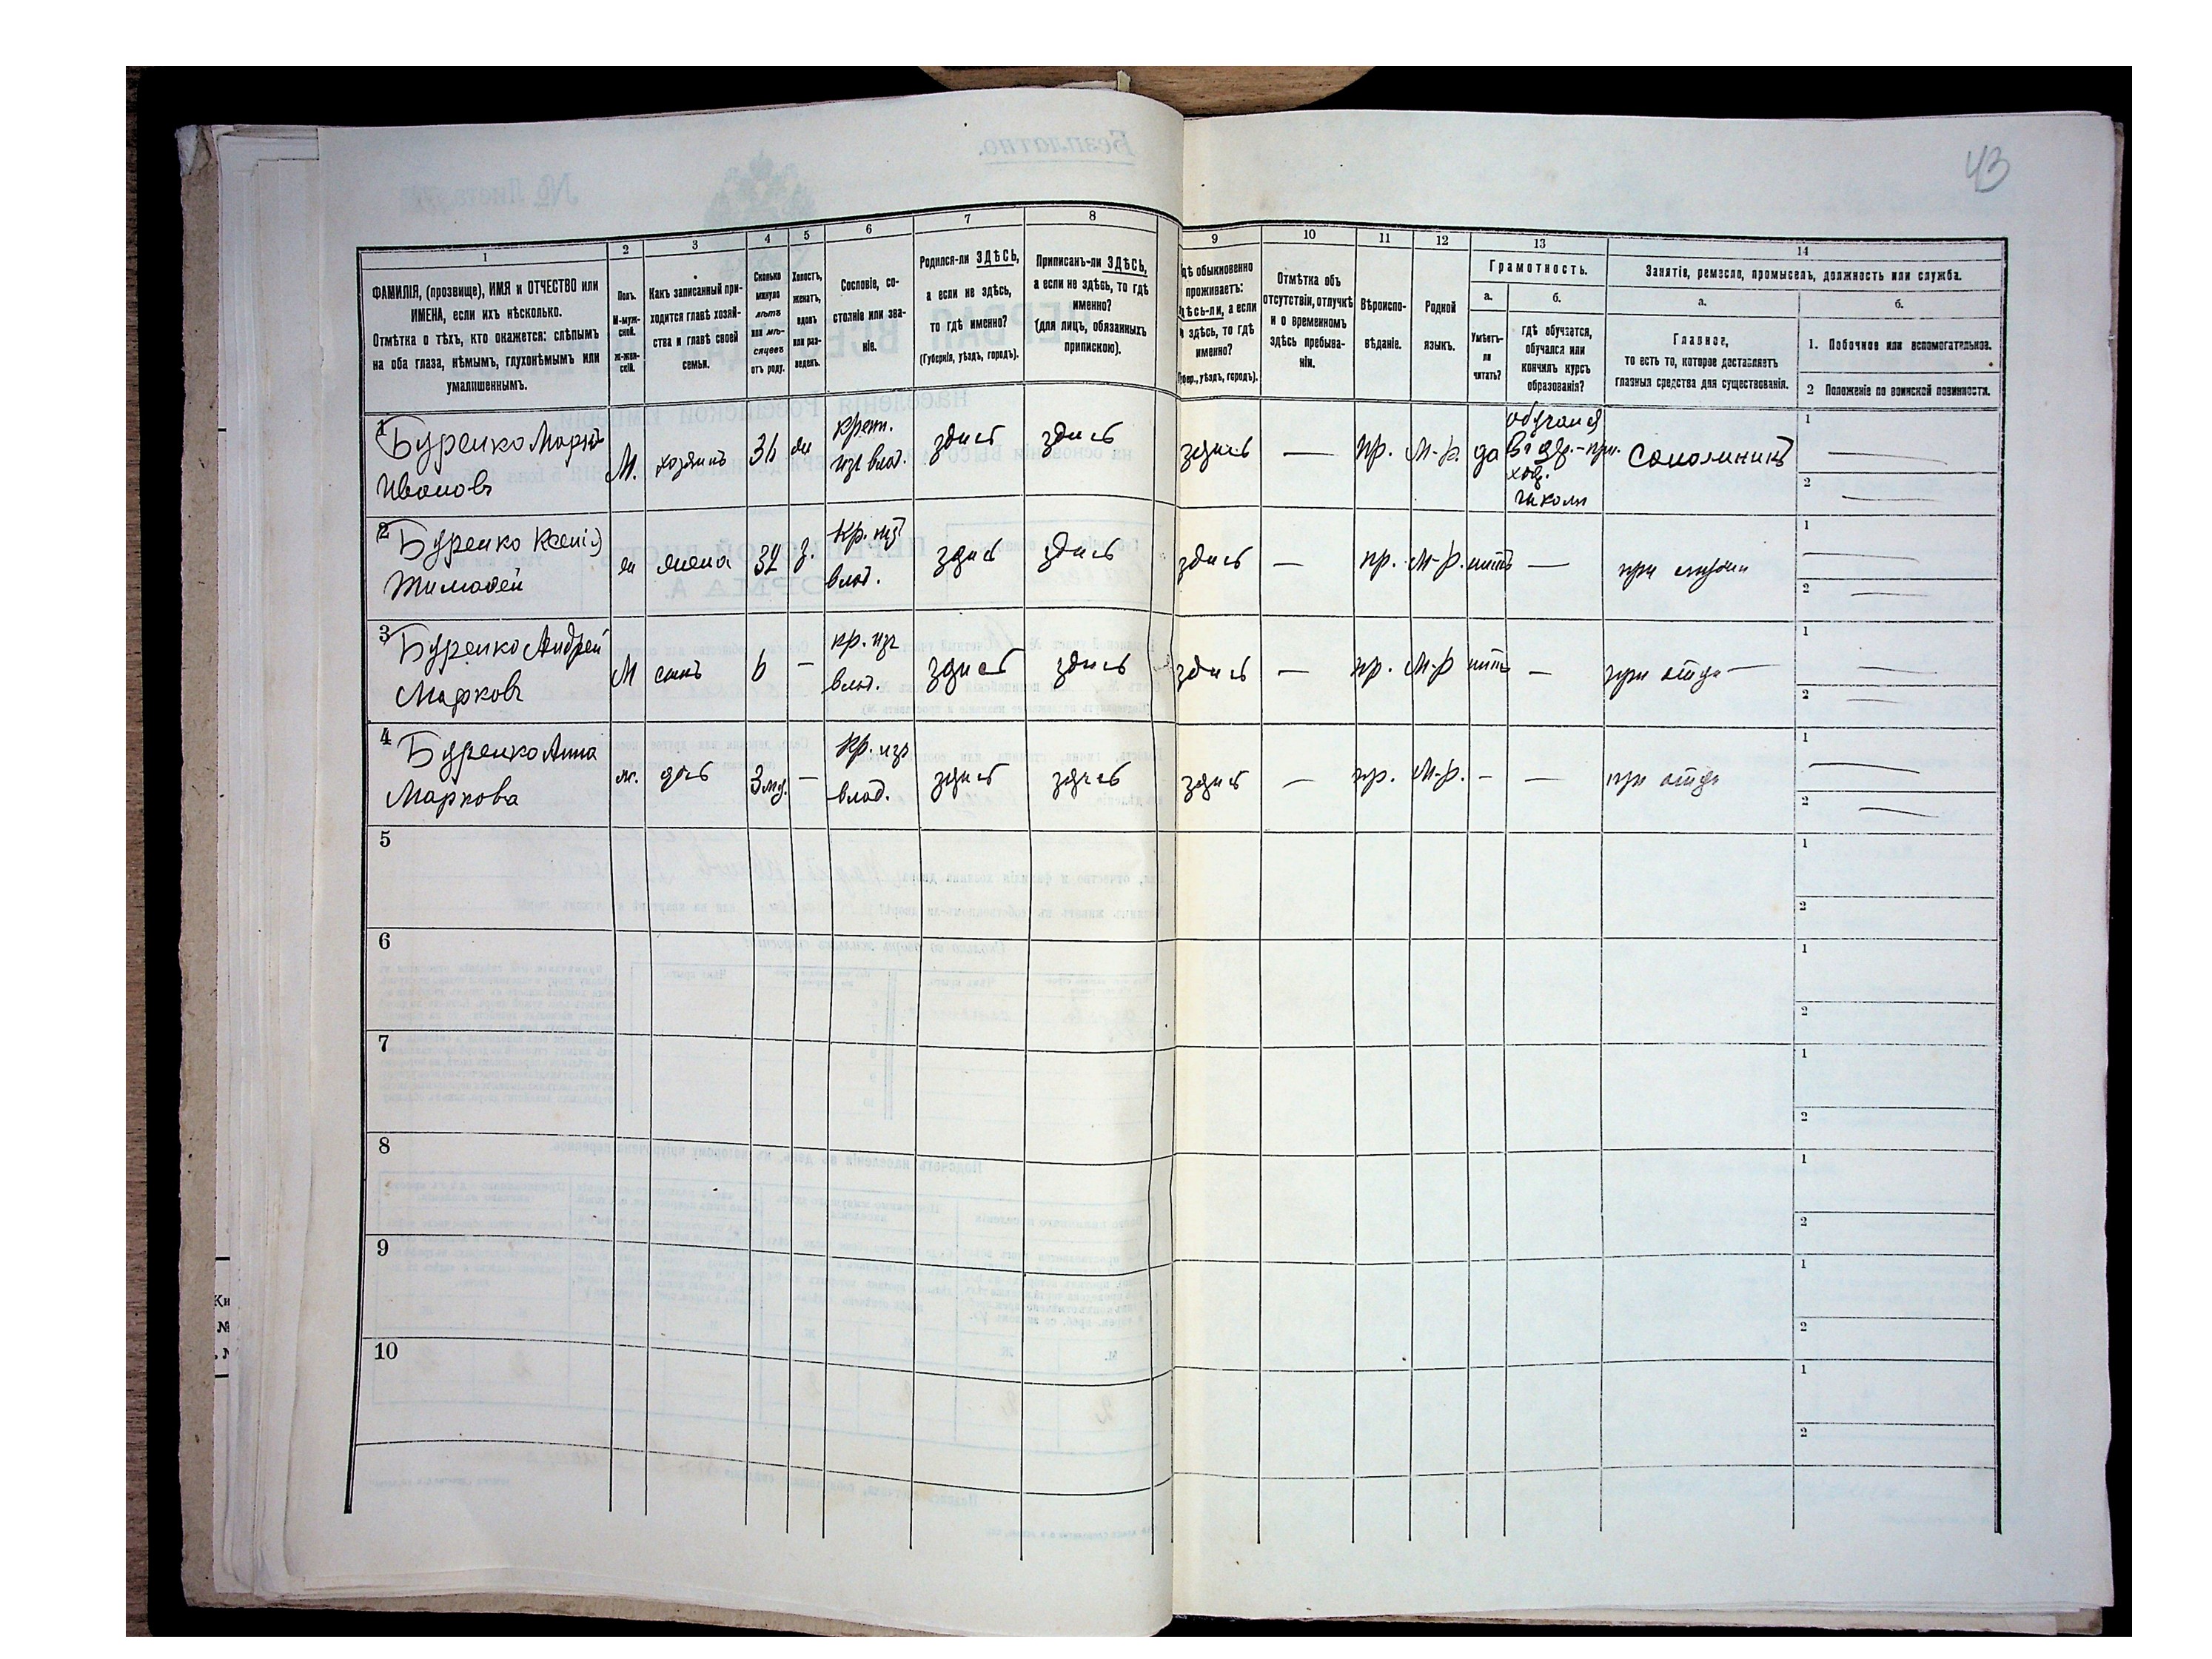 43
1
2
3
4
5
6
7
8
9
10
11
12
13
14
ФАМИЛІЯ, (прозвище), ИМЯ и ОТЧЕСТВО или
ИМЕНА, если ихъ нѣсколько.
Отмѣтка о тѣхъ, кто окажется: слѣпымъ
на оба глаза, нѣмымъ, глухонѣмымъ или
умалишеннымъ.
Полъ.
М-муж-
ской.
Ж-жен-
скій.
Какъ записанный при-
ходится главѣ хозяй-
ства и главѣ своей
семьи.
Сколько
минуло
лѣтъ
или мѣ-
сяцевъ
отъ роду.
Холостъ,
женатъ,
вдовъ
или раз-
веденъ.
Сословіе, со-
стояніе или зва-
ніе.
Родился-ли ЗДѢСЬ,
а если не здѣсь,
то гдѣ именно?
(Губернія, уѣздъ, городъ).
Приписанъ-ли ЗДѢСЬ,
а если не здѣсь, то гдѣ
именно?
(для лицъ, обязанныхъ
припискою).
дѣ обыкновенно
проживаетъ:
дѣсь-ли, а если
здѣсь, то гдѣ
именно?
убер., уѣздъ, городъ).
Отмѣтка объ
отсутствіи, отлучкѣ
и о временномъ
здѣсь пребыва-
ніи.
Вѣроиспо-
вѣданіе.
Родной
языкъ.
Грамотность.
а.
б.
Умѣетъ-
ли
читать?
гдѣ обучается,
обучался или
кончилъ курсъ
образованія?
Занятія, ремесло, промыселъ, должность или служба.
а.
б.
Главное,
то есть то, которое доставляетъ
главныя средства для существованія.
1. Побочное или вспомогательное.
2 Положеніе по воинской повинности.
1 Буренко Марко Ивановъ М. хозяинъ 36 ж Крест. изъ влад. здѣсь здѣсь здѣсь — пр. М-р. да обучался — —
2 Буренко Ксенія Тимофей ж жена 32 з. Кр. изъ влад. здѣсь здѣсь здѣсь — пр. М-р. нѣтъ — при мужѣ — —
3 Буренко Андрей Марковъ М сынъ 6 — кр. изъ влад. здѣсь здѣсь здѣсь — пр. М-р нѣтъ — при отцѣ — —
4 Буренко Анна Маркова ж. дочь — Кр. изъ влад. здѣсь здѣсь здѣсь — пр. М-р. — — при отцѣ — —
5
6
7
8
9
10